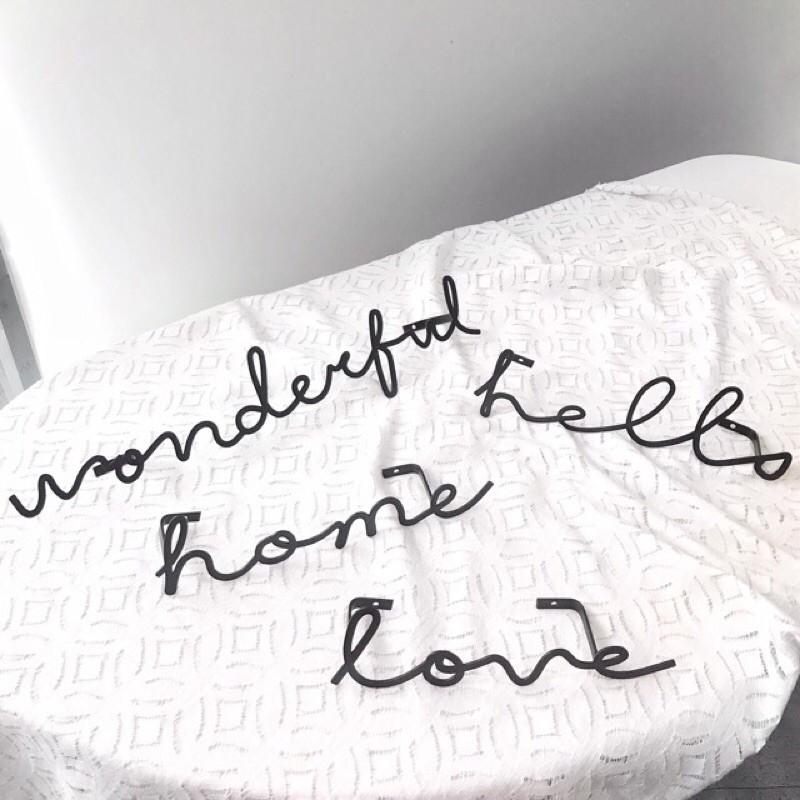 wonderful
hello
home
love